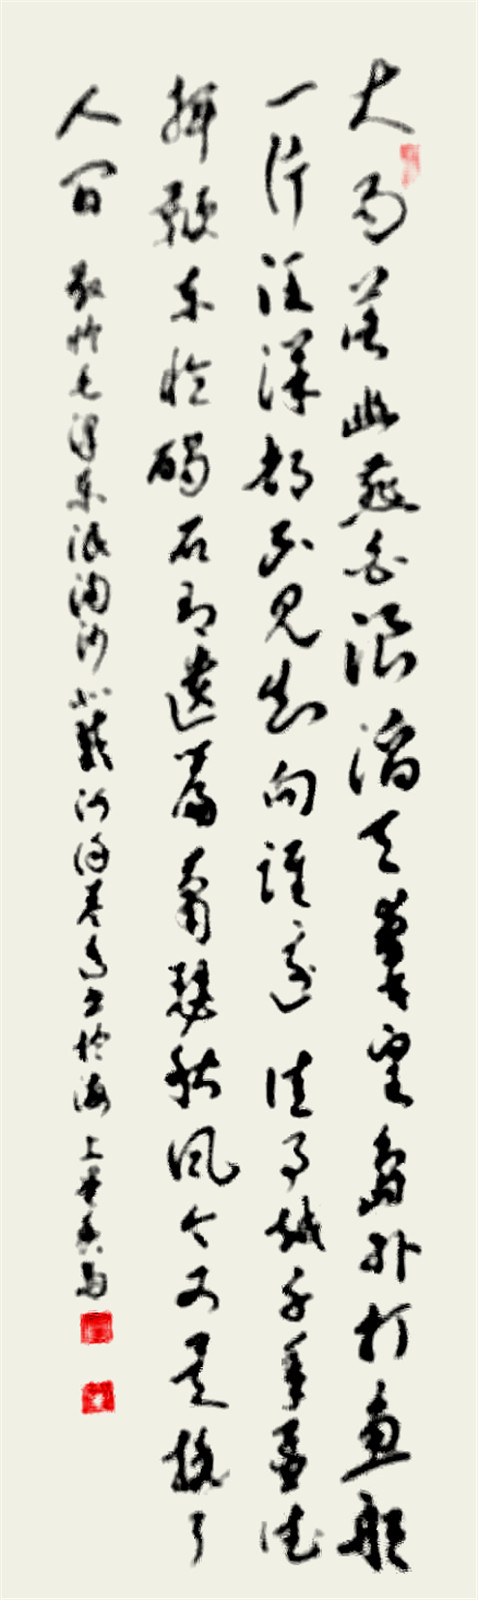 大雨落幽燕白浪滔天秦皇岛外打鱼船
一片汪洋都不见知向谁边往事越千年魏武
挥鞭东临碣石有遗篇萧瑟秋风今又是换了
人间 毛泽东浪淘沙北戴河 书于海上